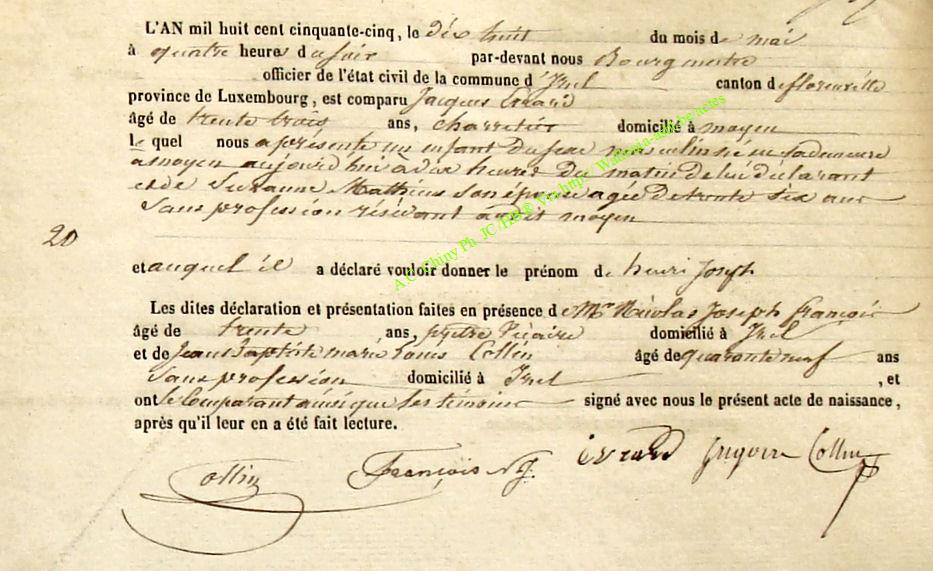 L'AN mil huit cent cinquante-cinq, le dix huit du mois de mai
à quatre heures du soir par-devant nous Bourgmestre
officier de l'état civil de la commune d'Izel canton de florenville
province de Luxembourg, est comparu Jacques Evrard
âgé de trente trois ans, charretier domicilié à moyen
lequel nous a présenté un enfant du sexe masculin né en sa demeure
à moyen aujourd'hui à dix heures du matin de lui déclarant
et de Suzanne Mathieu son épouse agée de trente six ans
sans profession résidant audit moyen
20
et auquel il a déclaré vouloir donner le prénom de henri Joseph
Les dites déclaration et présentation faites en présence de Mr Nicolas Joseph françois
âgé de trente ans, prêtre Vicaire domicilié à Izel
et de Jean Baptiste marie Louis Collin âgé de quarante neuf ans
Sans profession domicilié à Izel , et
ont le Comparant ainsi que les témoins signé avec nous le présent acte de naissance,
après qu'il leur en a été fait lecture.
Collin François N J. evrard Collin
A.C. Chiny Ph. JC